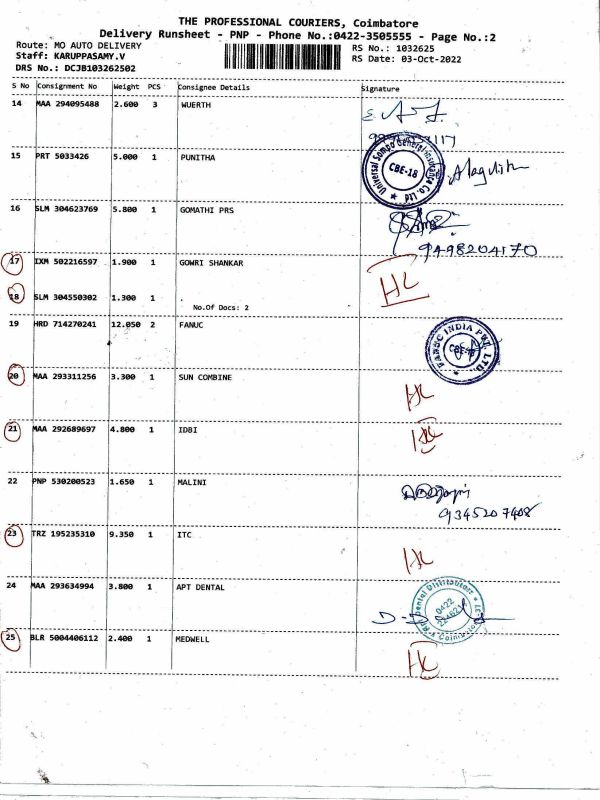 THE PROFESSIONAL COURIERS, Coimbatore
Delivery Runsheet - PNP - Phone No.:0422-3505555 - Page No.:2
Route: MO AUTO DELIVERY
RS No.: 1032625
Staff: KARUPPASAMY.V
RS Date: 03-Oct-2022
DRS No.: DCJB103262502
S No Consignment No Weight PCS Consignee Details Signature
14 MAA 294095488 2.600 3 WUERTH
15 PRT 5033426 5.000 1 PUNITHA
Universal Sompo General Insurance Co. Ltd
CBE-18
16 SLM 304623769 5.800 1 GOMATHI PRS
9498204170
17 IXM 502216597 1.900 1 GOWRI SHANKAR
HC
18 SLM 304550302 1.300 1
No.Of Docs: 2
19 HRD 714270241 12.050 2 FANUC
FANUC INDIA PVT. LTD.
20 MAA 293311256 3.300 1 SUN COMBINE
HC
21 MAA 292689697 4.800 1 IDBI
HC
22 PNP 530200523 1.650 1 MALINI
9345207408
23 TRZ 195235310 9.350 1 ITC
HC
24 MAA 293634994 3.800 1 APT DENTAL
0422
25 BLR 5004406112 2.400 1 MEDWELL
HC